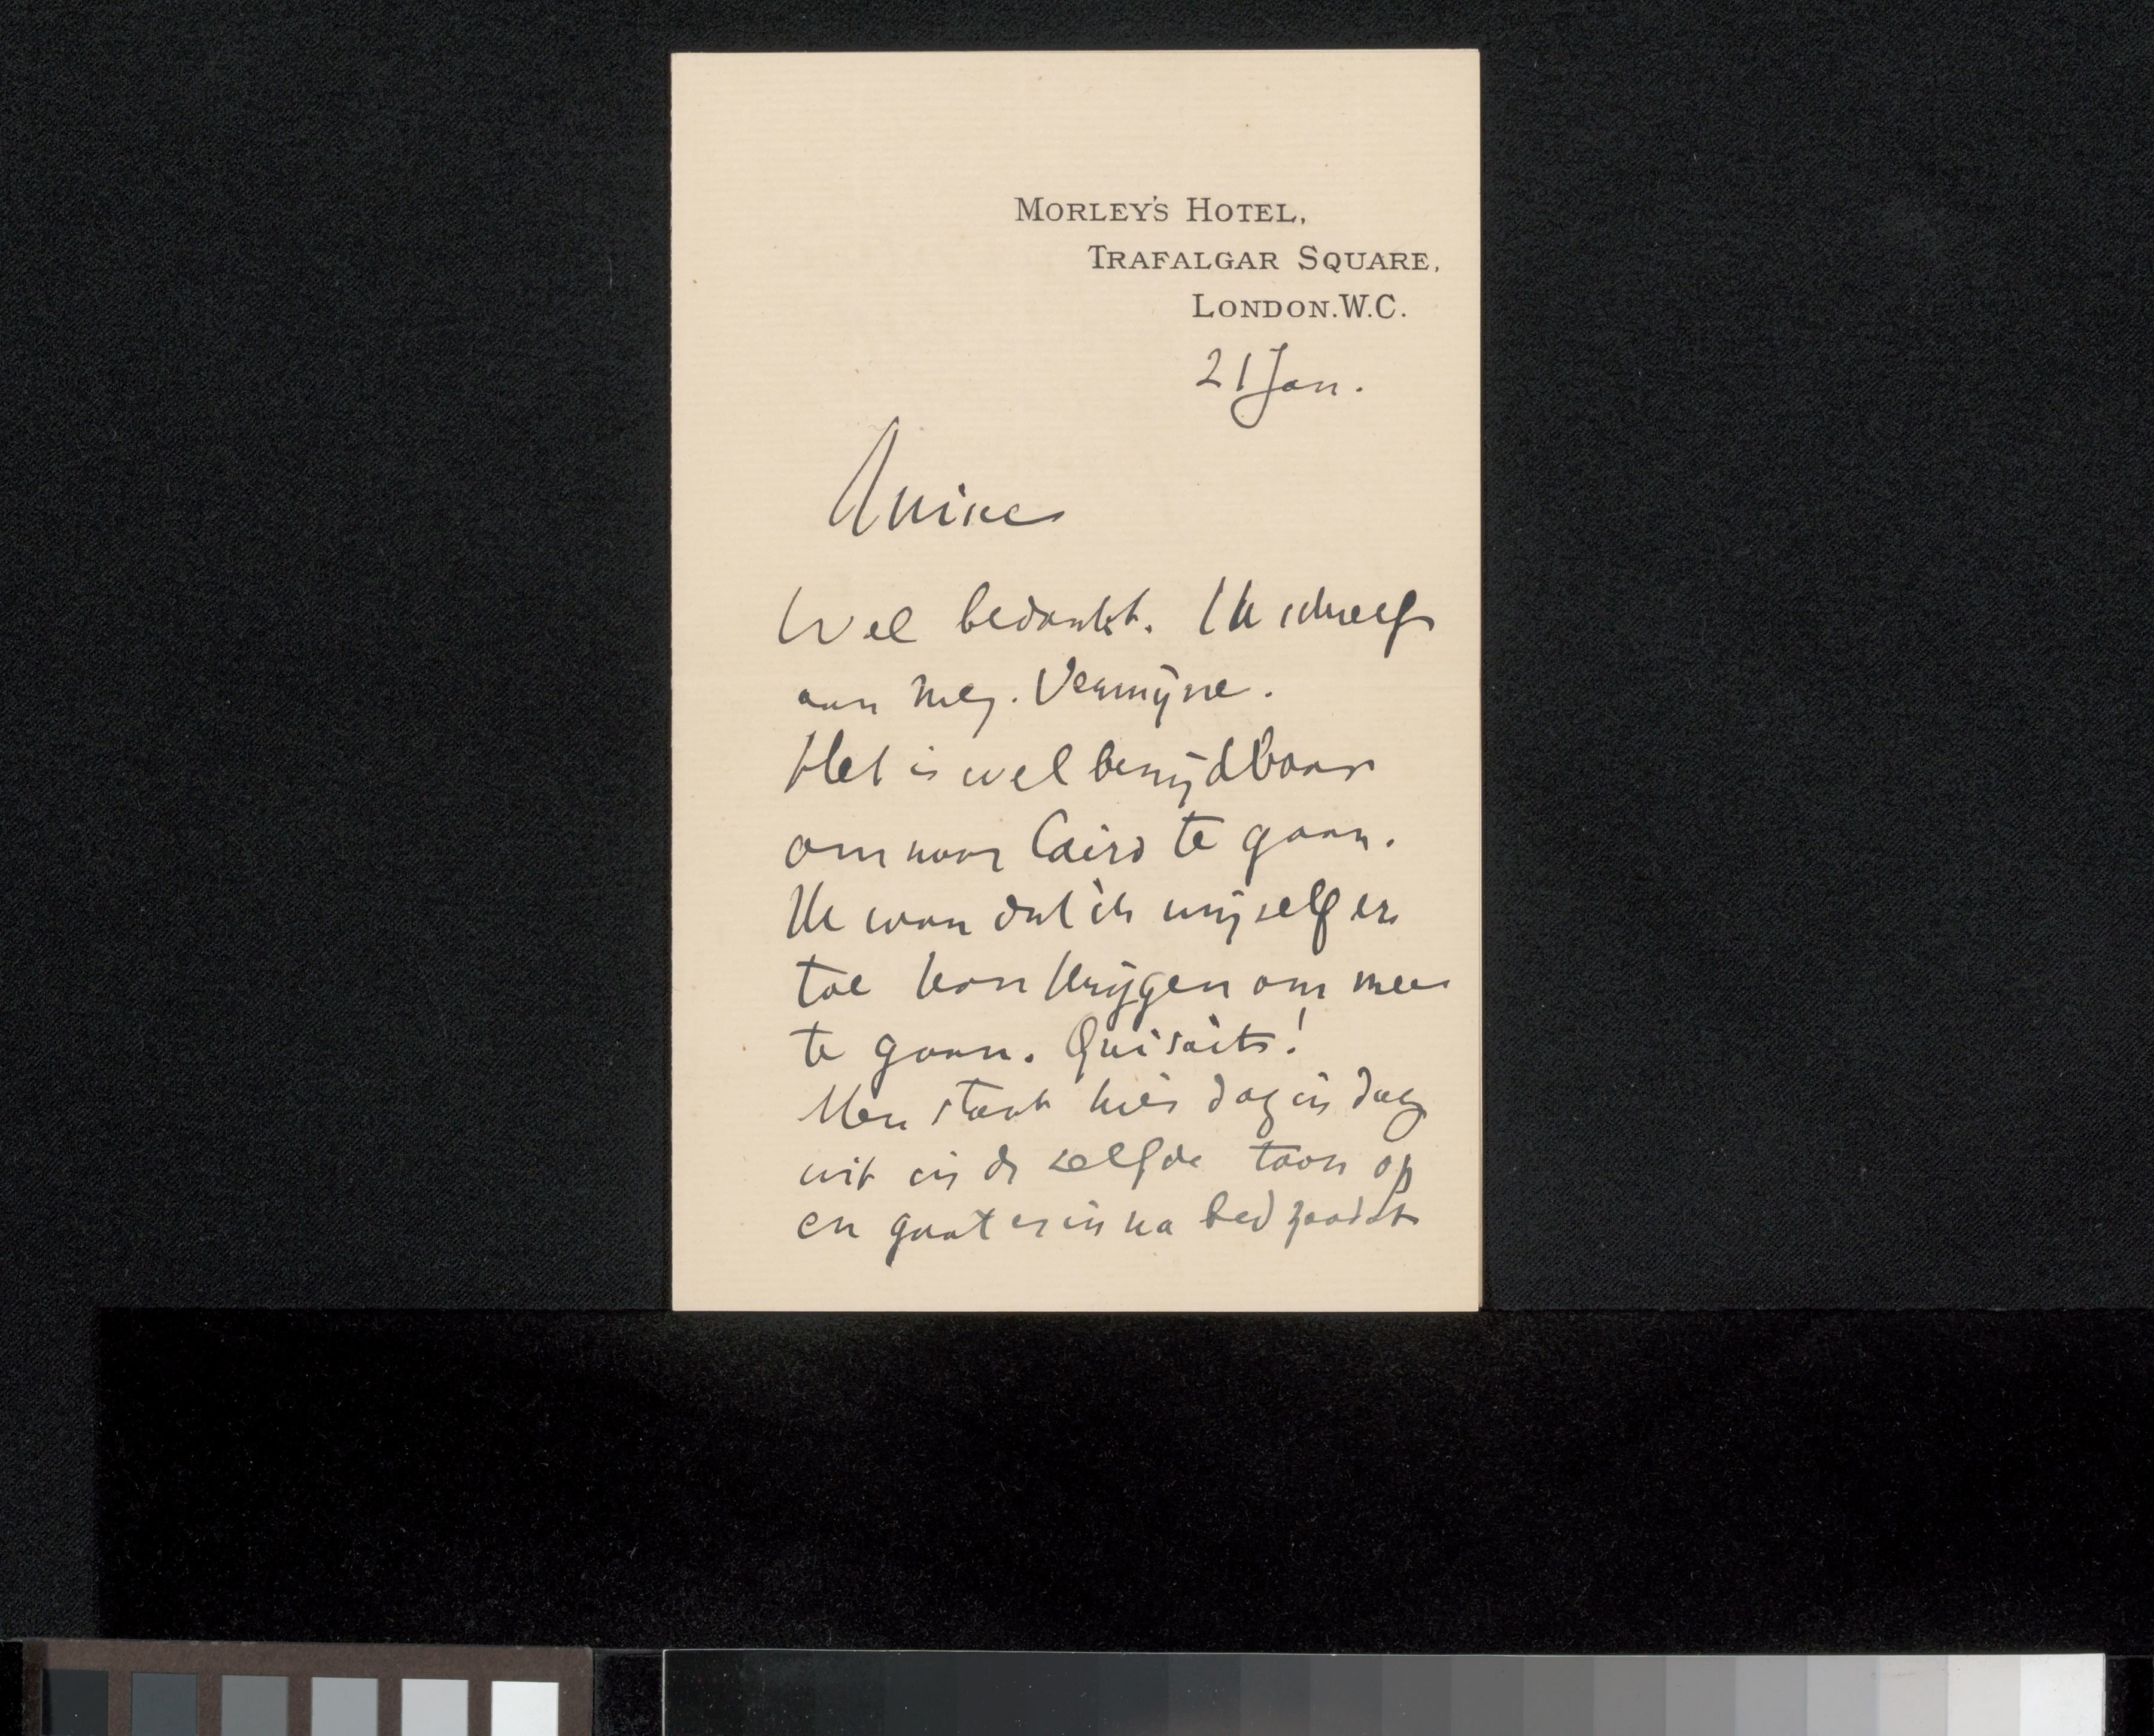 MORLEY'S HOTEL,
TRAFALGAR SQUARE,
LONDON.W.C.
21 Jan.
Amice
Wel bedankt. Ik schreef
aan Mej. Vermijne.
Het is wel benijdbaar
om naar Cairo te gaan.
Ik wou dat ik mijself er
toe kon krijgen om mee
te gaan. Qui sait!
Men staat hier dag in dag
uit in de zelfde toon op
en gaat er in na bed zoodat